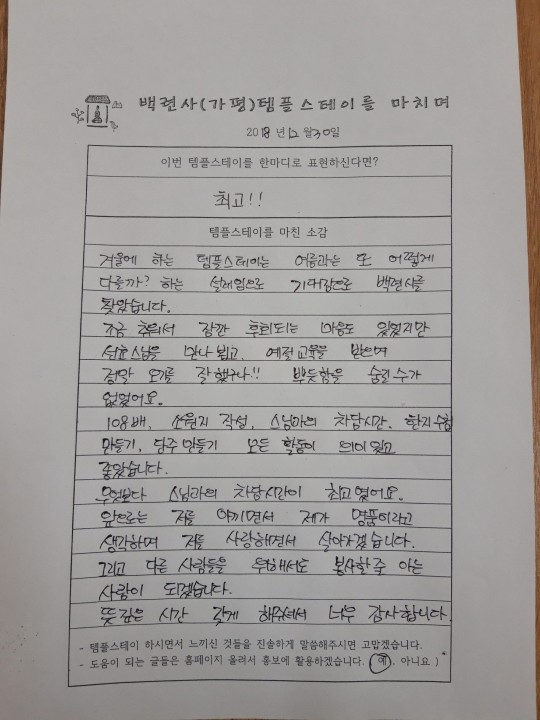 백련사(가평)템플스테이를 마치며
2018년 12월30일
이번 템플스테이를 한마디로 표현하신다면?
최고!!
템플스테이를 마친 소감
겨울에 하는 템플스테이는 여름과는 또 어떻게
다를까? 하는 설레임으로 기대감으로 백련사를
찾았습니다.
조금 추워서 잠깐 후회되는 마음도 있었지만
스님을 만나 뵙고, 예절교육을 받으며
정말 오기를 잘했구나!! 뿌듯함을 숨길수가
없었어요.
108배, 소원지 작성, 스님과의 차담시간, 한지수첩
만들기, 단주만들기 모든 활동이 의미있고
좋았습니다.
무엇보다 스님과의 차담시간이 최고였어요.
앞으로는 저를 아끼면서 제가 명품이라고
생각하며 저를 사랑하면서 살아가겠습니다.
그리고 다른 사람들을 위해서도 봉사할줄 아는
사람이 되겠습니다.
뜻깊은 시간 갖게 해주셔서 너무 감사합니다.
- 템플스테이 하시면서 느끼신 것들을 진솔하게 말씀해주시면 고맙겠습니다.
- 도움이 되는 글들은 홈페이지 올려서 홍보에 활용하겠습니다. ( 예, 아니요 )